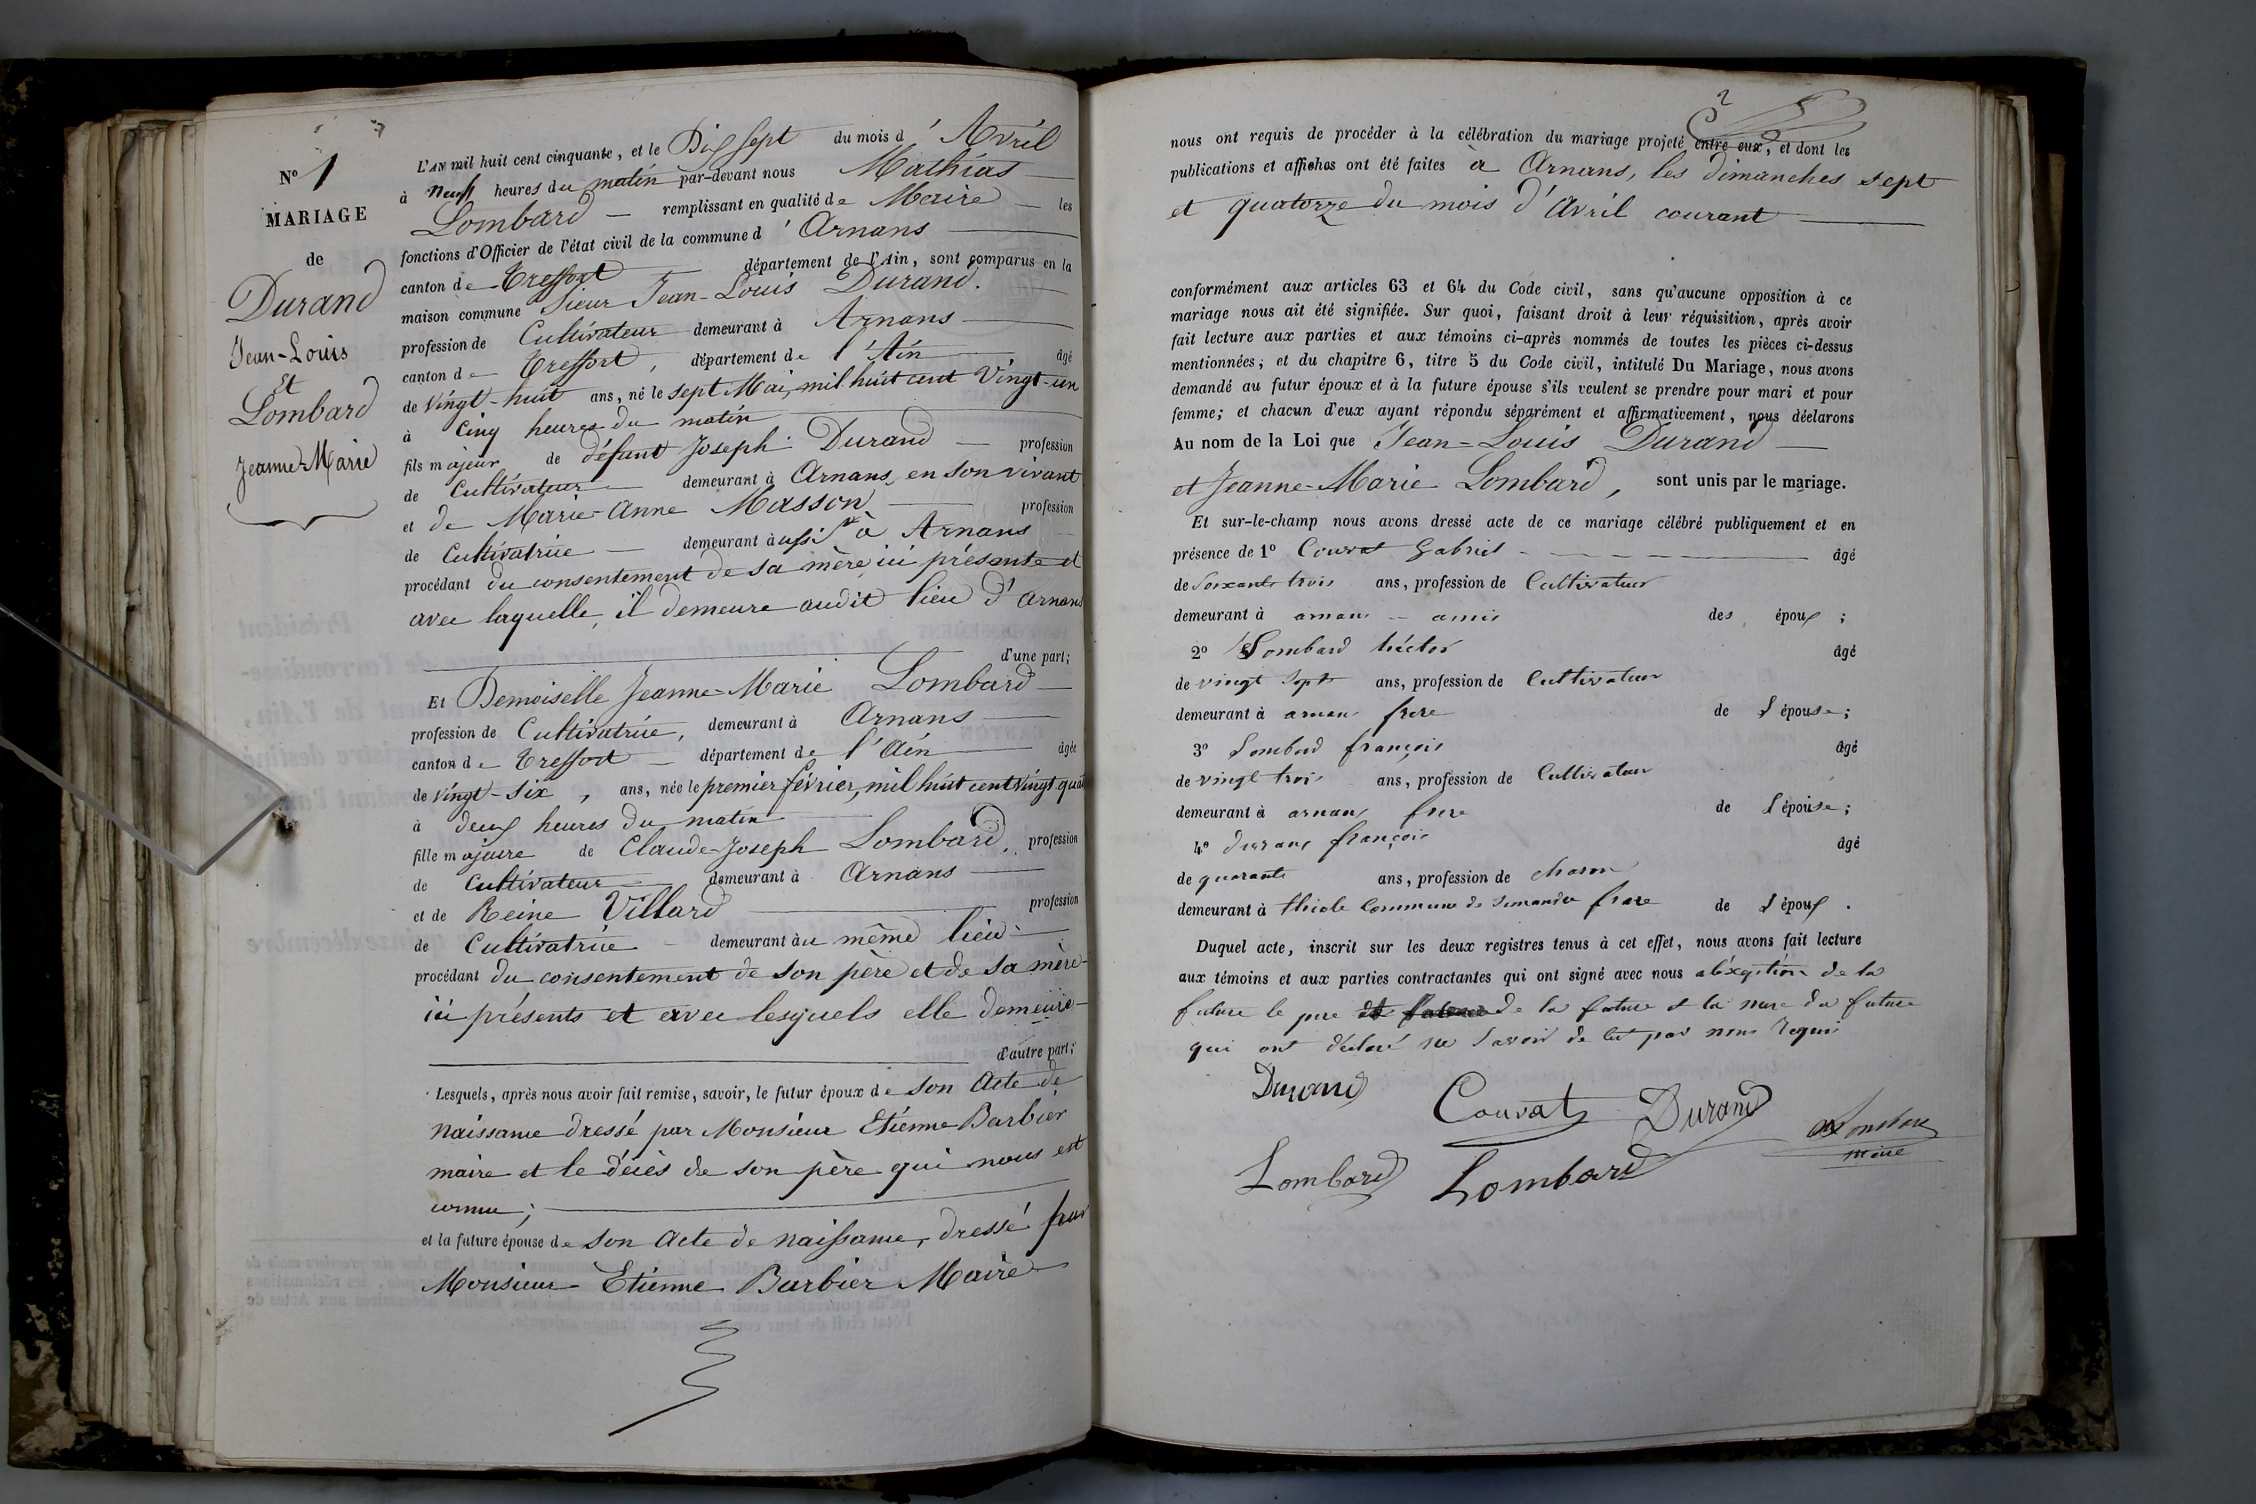 N° 1
MARIAGE
de
Durand
Jean-Louis
Et
Lombard
Jeanne-Marie
L'AN mil huit cent cinquante, et le Dix sept du mois d'Avril
à neuf heures du matin par-devant nous Mathias
Lombard remplissant en qualité de Maire les
fonctions d'Officier de l'état civil de la commune d'Arnans
canton de Treffort département de l'Ain, sont comparus en la
maison commune Sieur Jean-Louis Durand.
profession de Cultivateur demeurant à Arnans
canton de Treffort, département de l'Ain âgé
de vingt-huit ans, né le sept Mai, mil huit cent vingt-un
à cinq heures du matin
fils majeur de défunt Joseph Durand profession
de Cultivateur demeurant à Arnans, en son vivant
et de Marie-Anne Masson profession
de Cultivatrice demeurant aussi à Arnans
procédant du consentement de sa mère ici présente et
avec laquelle, il demeure audit lieu d'Arnans
d'une part;
Et Demoiselle Jeanne-Marie Lombard
profession de Cultivatrice, demeurant à Arnans
canton de Treffort département de l'Ain âgée
de vingt-six, ans, née le premier février, mil huit cent vingt quat
à deux heures du matin
fille majeure de Claude-Joseph Lombard, profession
de Cultivateur demeurant à Arnans
et de Reine Villard profession
de Cultivatrice demeurant au même lieu
procédant du consentement de son père et de sa mère
ici présents et avec lesquels elle demeure
d'autre part;
Lesquels, après nous avoir fait remise, savoir, le futur époux de son Acte de
naissance dressé par Monsieur Etienne Barbier
maire et le décès de son père qui nous est
connu;
et la future épouse de son Acte de naissance, dressé par
Monsieur Etienne Barbier Maire
2
nous ont requis de procéder à la célébration du mariage projeté entre eux, et dont les
publications et affiches ont été faites à Arnans, les dimanches sept
et quatorze du mois d'Avril courant
conformément aux articles 63 et 64 du Code civil, sans qu'aucune opposition à ce
mariage nous ait été signifiée. Sur quoi, faisant droit à leur réquisition, après avoir
fait lecture aux parties et aux témoins ci-après nommés de toutes les pièces ci-dessus
mentionnées; et du chapitre 6, titre 5 du Code civil, intitulé Du Mariage, nous avons
demandé au futur époux et à la future épouse s'ils veulent se prendre pour mari et pour
femme; et chacun d'eux ayant répondu séparément et affirmativement, nous déclarons
Au nom de la Loi que Jean-Louis Durand
et Jeanne-Marie Lombard, sont unis par le mariage.
Et sur-le-champ nous avons dressé acte de ce mariage célébré publiquement et en
présence de 1° Couvat Gabriel âgé
de Soixante trois ans, profession de Cultivateur
demeurant à arnans amis des époux;
2° Lombard hictor âgé
de vingt sept ans, profession de Cultivateur
demeurant à arnans frere de l'épouse;
3° Lombard françois âgé
de vingt trois ans, profession de Cultivateur
demeurant à arnans frere de l'épouse;
4° durand françois âgé
de quarante ans, profession de charon
demeurant à thiole Commune de Simandre frere de l'époux.
Duquel acte, inscrit sur les deux registres tenus à cet effet, nous avons fait lecture
aux témoins et aux parties contractantes qui ont signé avec nous aléxeption de la
future le pere de la future et la mere du future
qui ont déclaré ne savoir de ce par nous requis
Durand
Couvat
Durand
Lombard
Lombard
maire